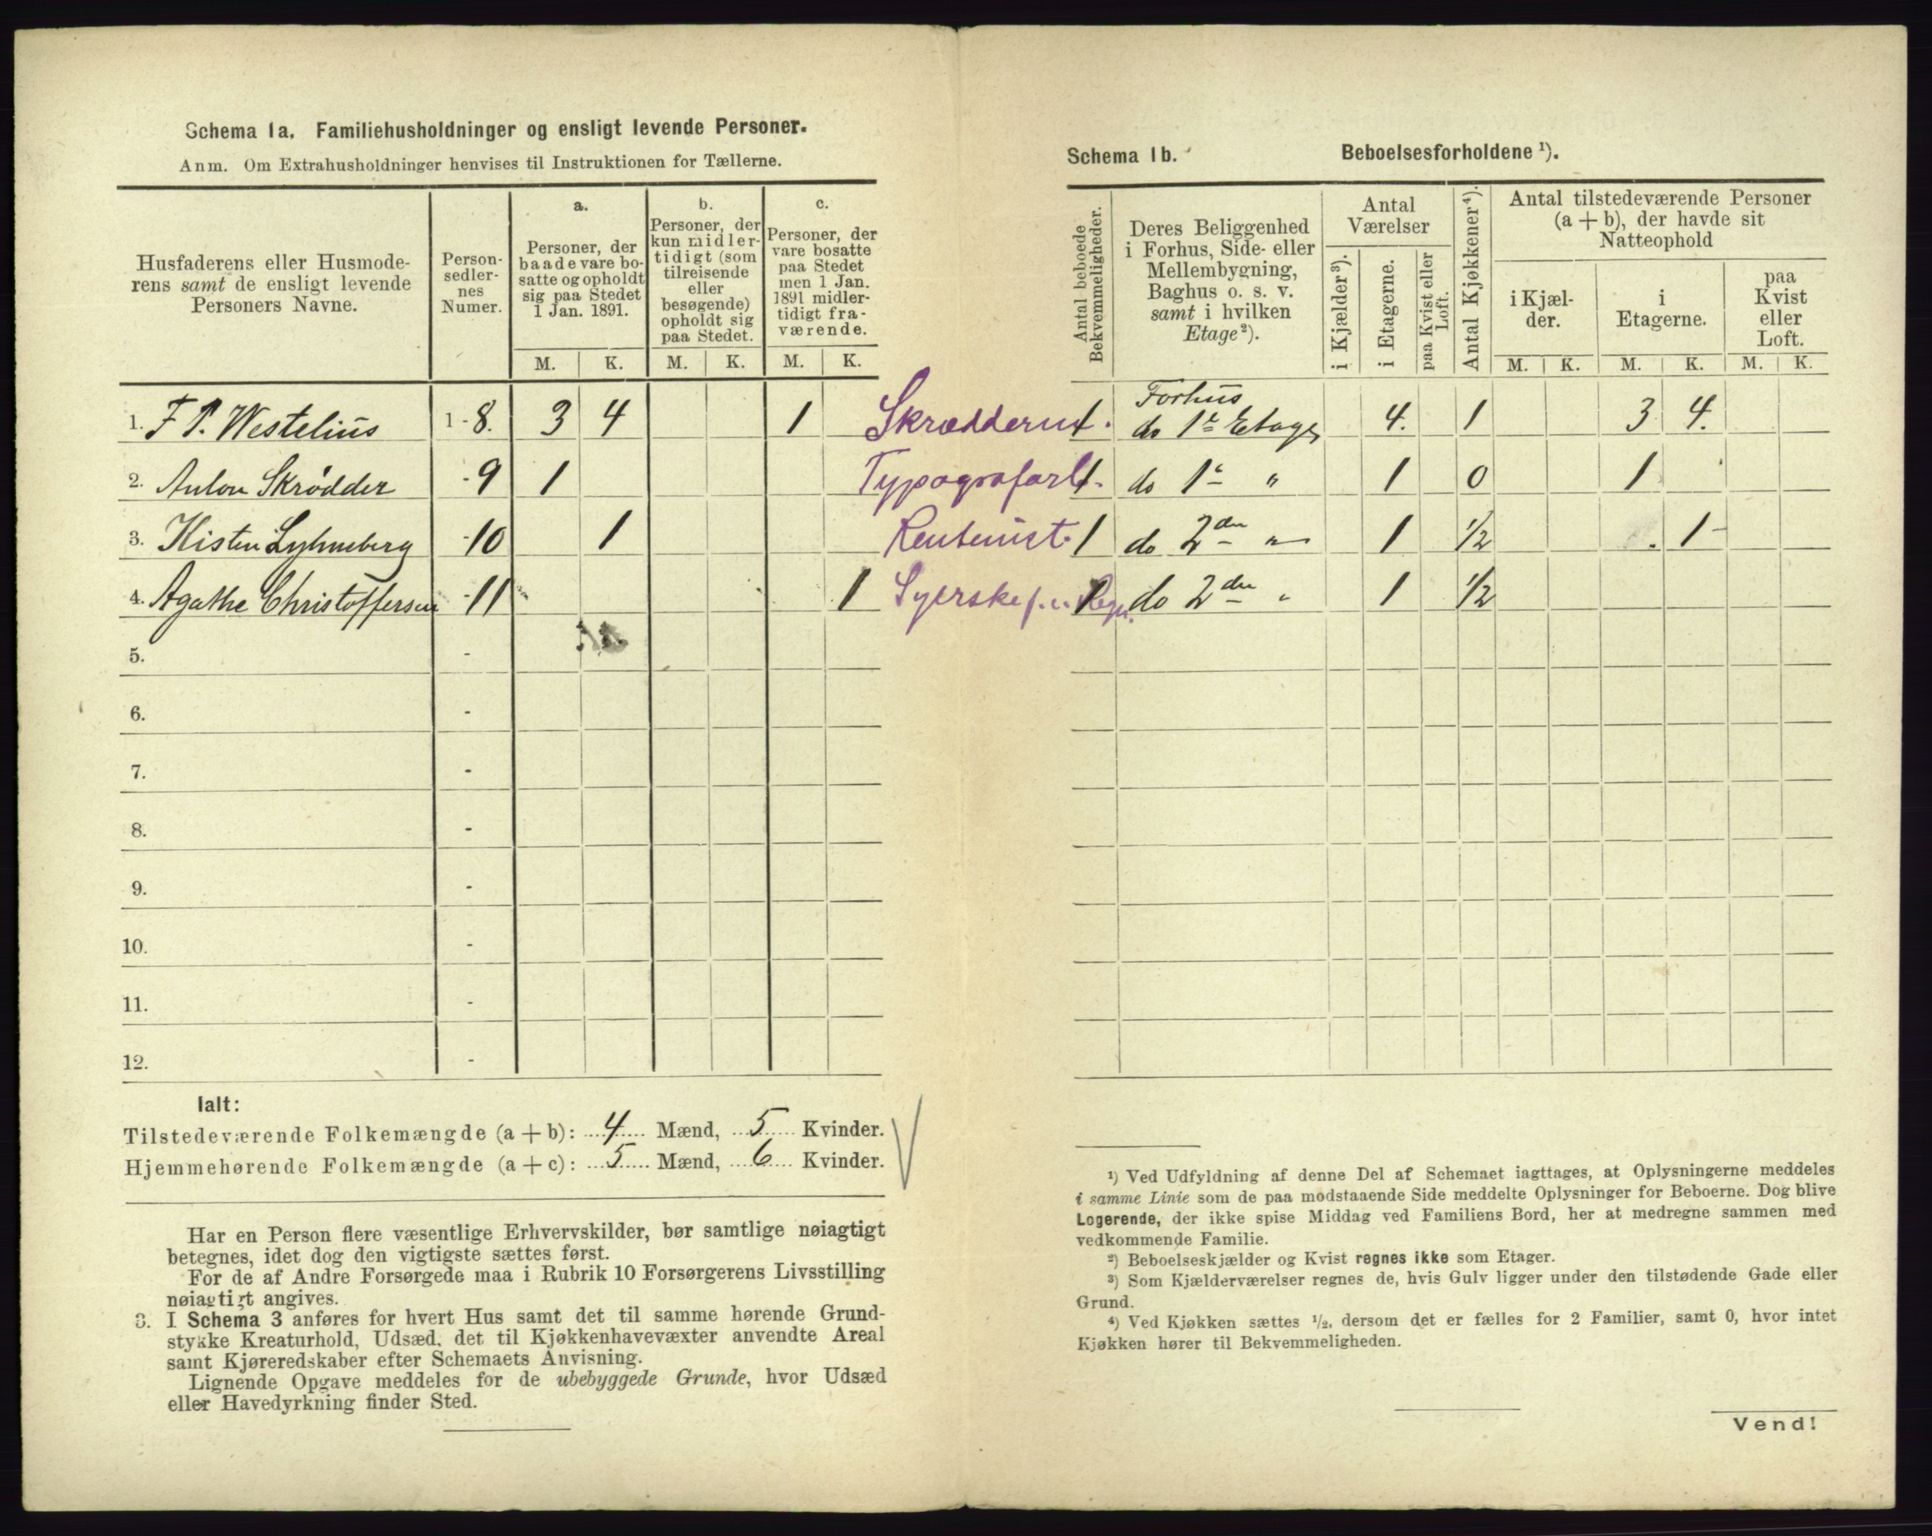 Schema 1a. Familiehusholdninger og ensligt levende Personer.
Anm. Om Extrahusholdninger henvises til Instruktionen for Tællerne.
Husfaderens eller Husmode-
rens samt de ensligt levende
Personers Navne.
Person-
sedler-
nes
Numer.
a.
Personer, der
baade vare bo-
satte og opholdt
sig paa Stedet
1 Jan. 1891.
b.
Personer, der
kun midler-
tidigt (som
tilreisende
eller
besøgende)
opholdt sig
paa Stedet.
c.
Personer, der
vare bosatte
paa Stedet
men 1 Jan.
1891 midler-
tidigt fra-
værende.
M. K. M. K. M. K.
1. F P. Westelius 1 - 8. 3 4 1 Skrædderm
2. Anton Skrødder - 9 1
3. Kisten Lyhmeberg - 10 1 Rentenist.
4. Agathe Christoffersen - 11 1 Syerske
5. -
6. -
7. -
8. -
9. -
10. -
11. -
12. -
Ialt:
Tilstedeværende Folkemængde (a + b): 4 Mænd, 5 Kvinder.
Hjemmehørende Folkemængde (a + c): 5 Mænd, 6 Kvinder.
Har en Person flere væsentlige Erhvervskilder, bør samtlige nøiagtigt
betegnes, idet dog den vigtigste sættes først.
For de af Andre Forsørgede maa i Rubrik 10 Forsørgerens Livsstilling
nøiagtigt angives.
3. I Schema 3 anføres for hvert Hus samt det til samme hørende Grund-
stykke Kreaturhold, Udsæd, det til Kjøkkenhavevæxter anvendte Areal
samt Kjøreredskaber efter Schemaets Anvisning.
Lignende Opgave meddeles for de ubebyggede Grunde, hvor Udsæd
eller Havedyrkning finder Sted.
Schema 1b. Beboelsesforholdene ¹).
Antal beboede
Bekvemmeligheder.
Deres Beliggenhed
i Forhus, Side- eller
Mellembygning,
Baghus o. s. v.
samt i hvilken
Etage²).
Antal
Værelser
i Kjælder³).
i Etagerne.
paa Kvist eller
Loft.
Antal Kjøkkener⁴).
Antal tilstedeværende Personer
(a + b), der havde sit
Natteophold
i Kjæl-
der.
i
Etagerne.
paa
Kvist
eller
Loft.
M. K. M. K. M. K.
Forhus
1. do 1e Etage 4. 1 3 4.
1. do 1e " 1 0 1
1 do 2den " 1 1/2 1
1 do 2den " 1 1/2
¹) Ved Udfyldning af denne Del af Schemaet iagttages, at Oplysningerne meddeles
i samme Linie som de paa modstaaende Side meddelte Oplysninger for Beboerne. Dog blive
Logerende, der ikke spise Middag ved Familiens Bord, her at medregne sammen med
vedkommende Familie.
²) Beboelseskjælder og Kvist regnes ikke som Etager.
³) Som Kjælderværelser regnes de, hvis Gulv ligger under den tilstødende Gade eller
Grund.
⁴) Ved Kjøkken sættes ¹/₂, dersom det er fælles for 2 Familier, samt 0, hvor intet
Kjøkken hører til Bekvemmeligheden.
Vend!